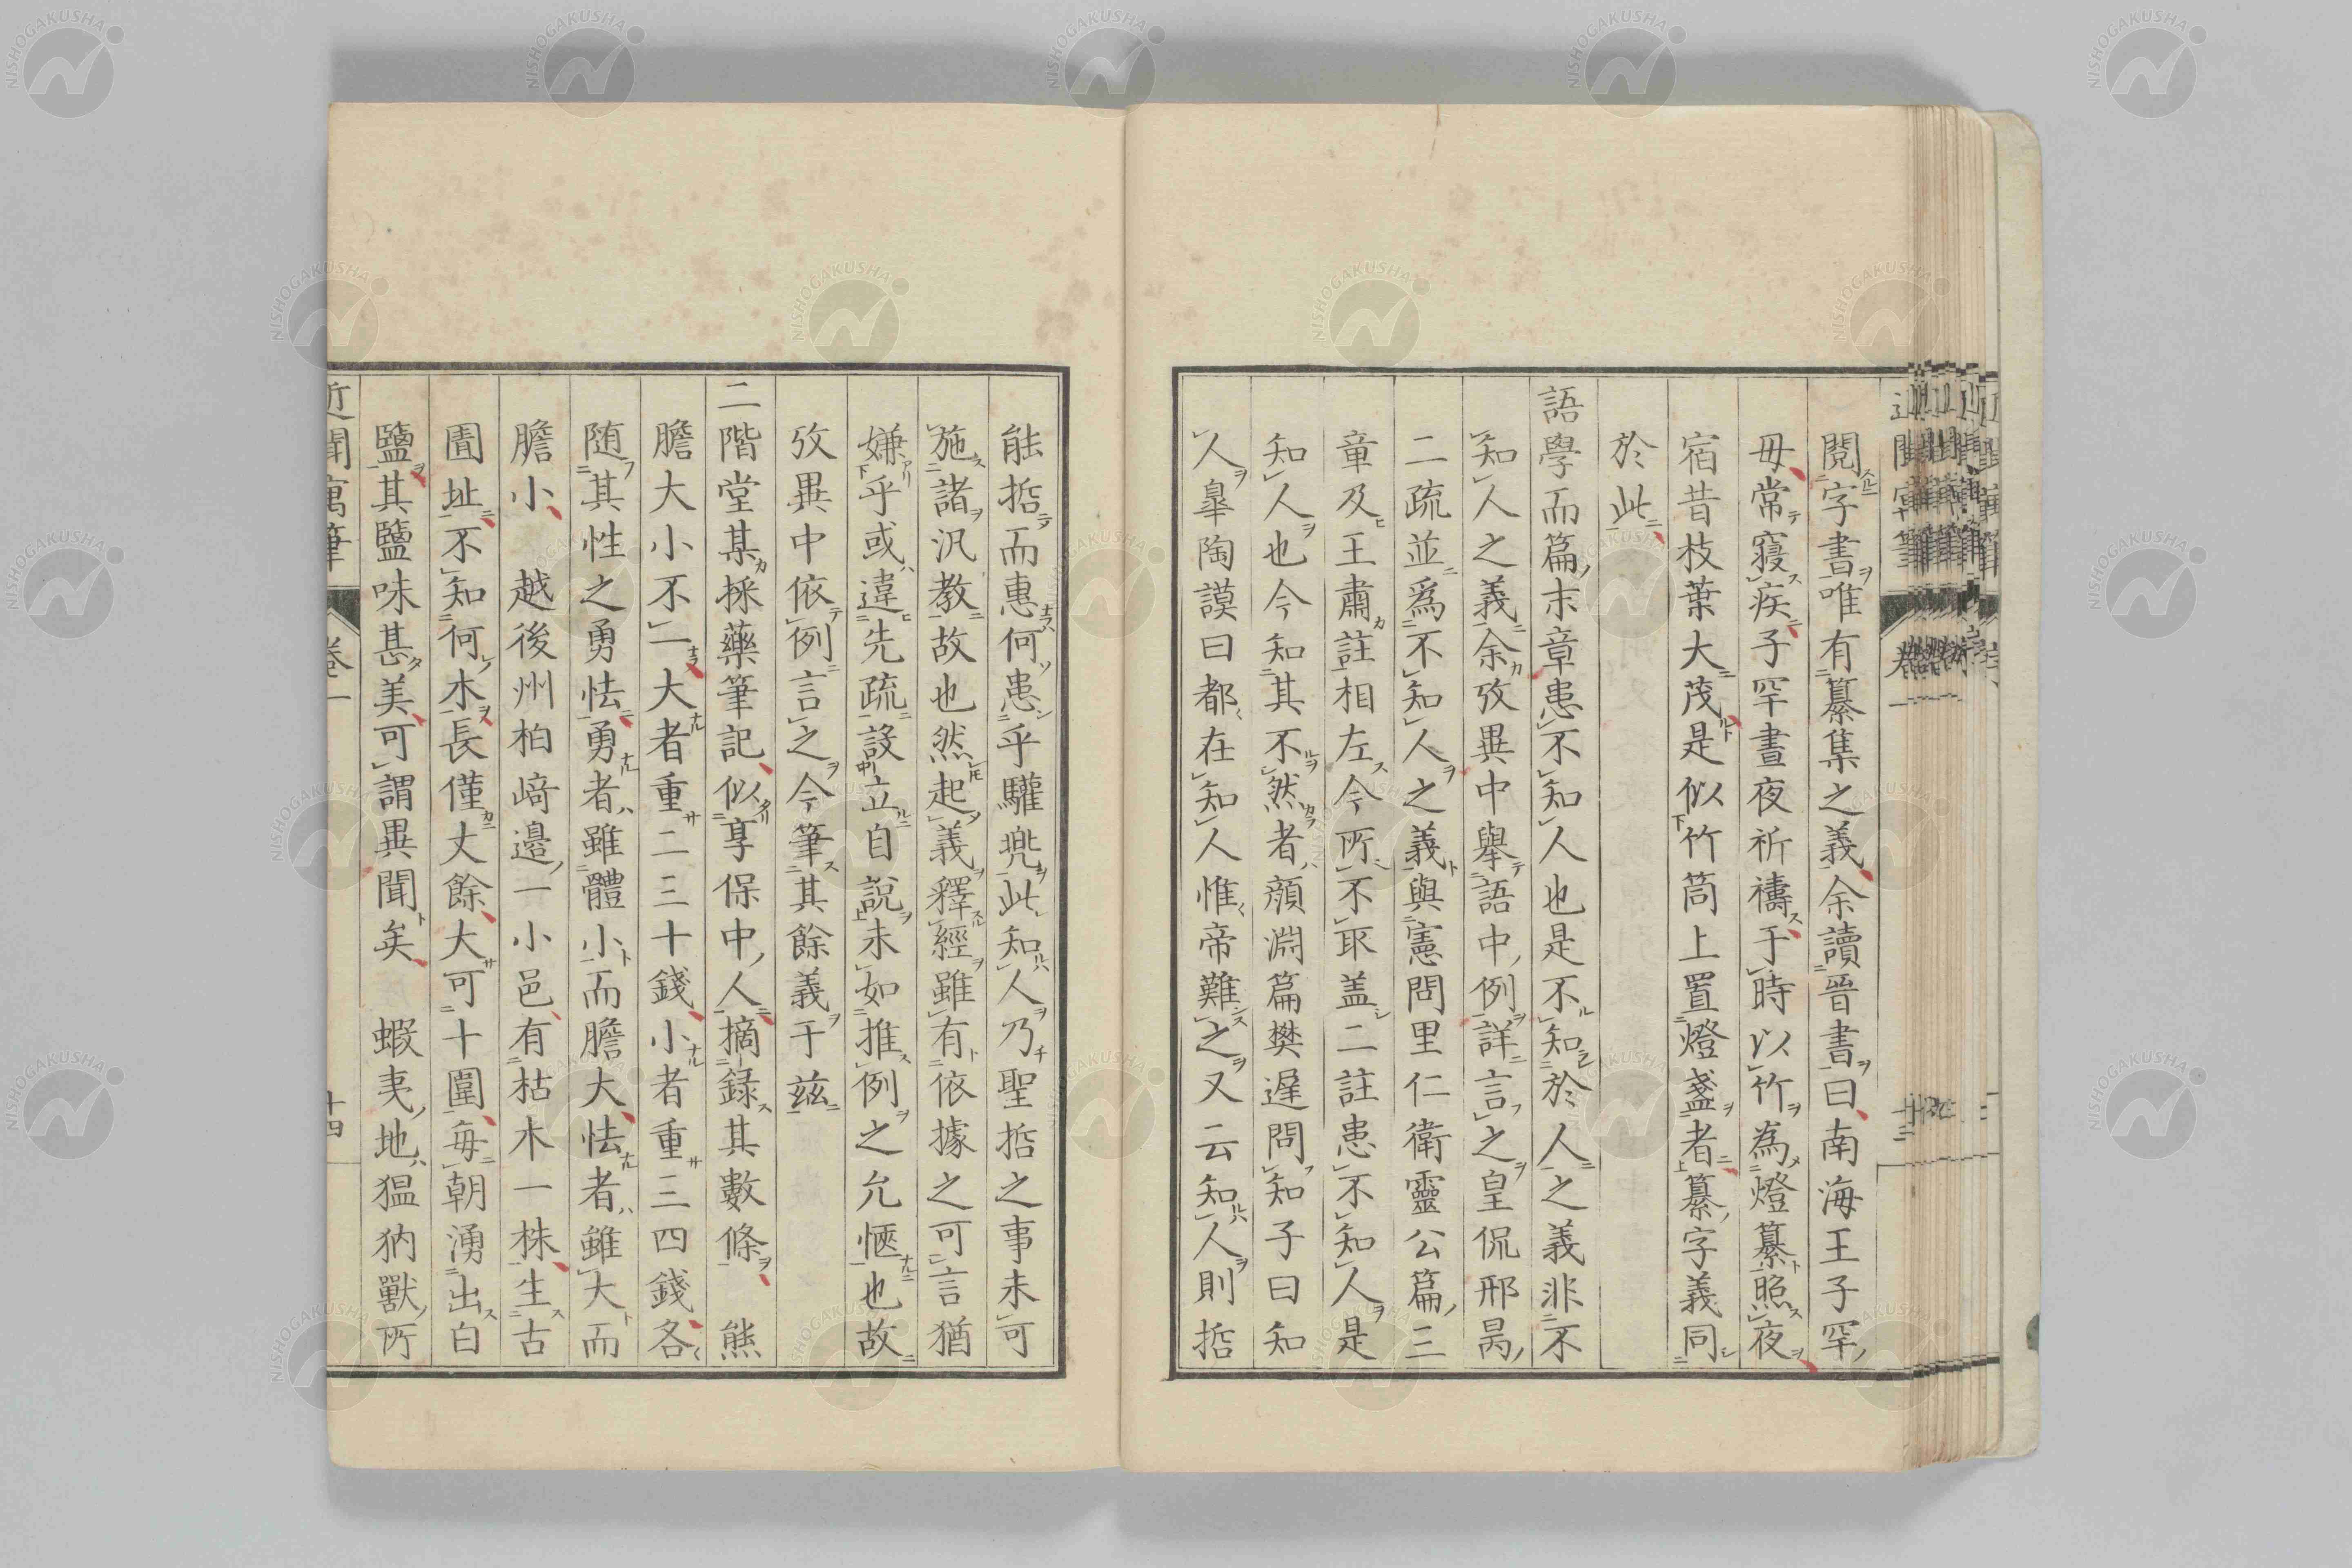 閱字書唯有纂集之義余讀晋書曰南海王子罕
毋常寢疾子罕晝夜祈禱于時以竹為燈纂照夜
宿昔枝葉大茂是似竹筒上置燈盞者纂字義同
於此
語學而篇末章患不知人也是不知於人之義非不
知人之義余攷異中舉語中例詳言之皇侃邢昺
二疏並為不知人之義與憲問里仁衛靈公篇三
章及王肅註相左今所不取盖二註患不知人是
知人也今知其不然者顏淵篇樊遲問知子曰知
人皐陶謨曰都在知人惟帝難之又云知人則哲
能哲而惠何患乎驩兜此知人乃聖哲之事未可
施諸汎教故也然起義釋經雖有依據之可言猶
嫌乎或違先疏設立自說未如推例之允愜也故
攷異中依例言之今筆其餘義于茲
二階堂某採藥筆記似享保中人摘錄其數條 熊
膽大小不一大者重二三十錢小者重三四錢各
随其性之勇怯勇者雖體小而膽大怯者雖大而
膽小 越後州柏﨑邊一小邑有枯木一株生古
圊址不知何木長僅丈餘大可十圍每朝湧出白
鹽其鹽味甚美可謂異聞矣 蝦夷地猛豹獸所
近聞寓筆 卷一 十四
NISHOGAKUSHA